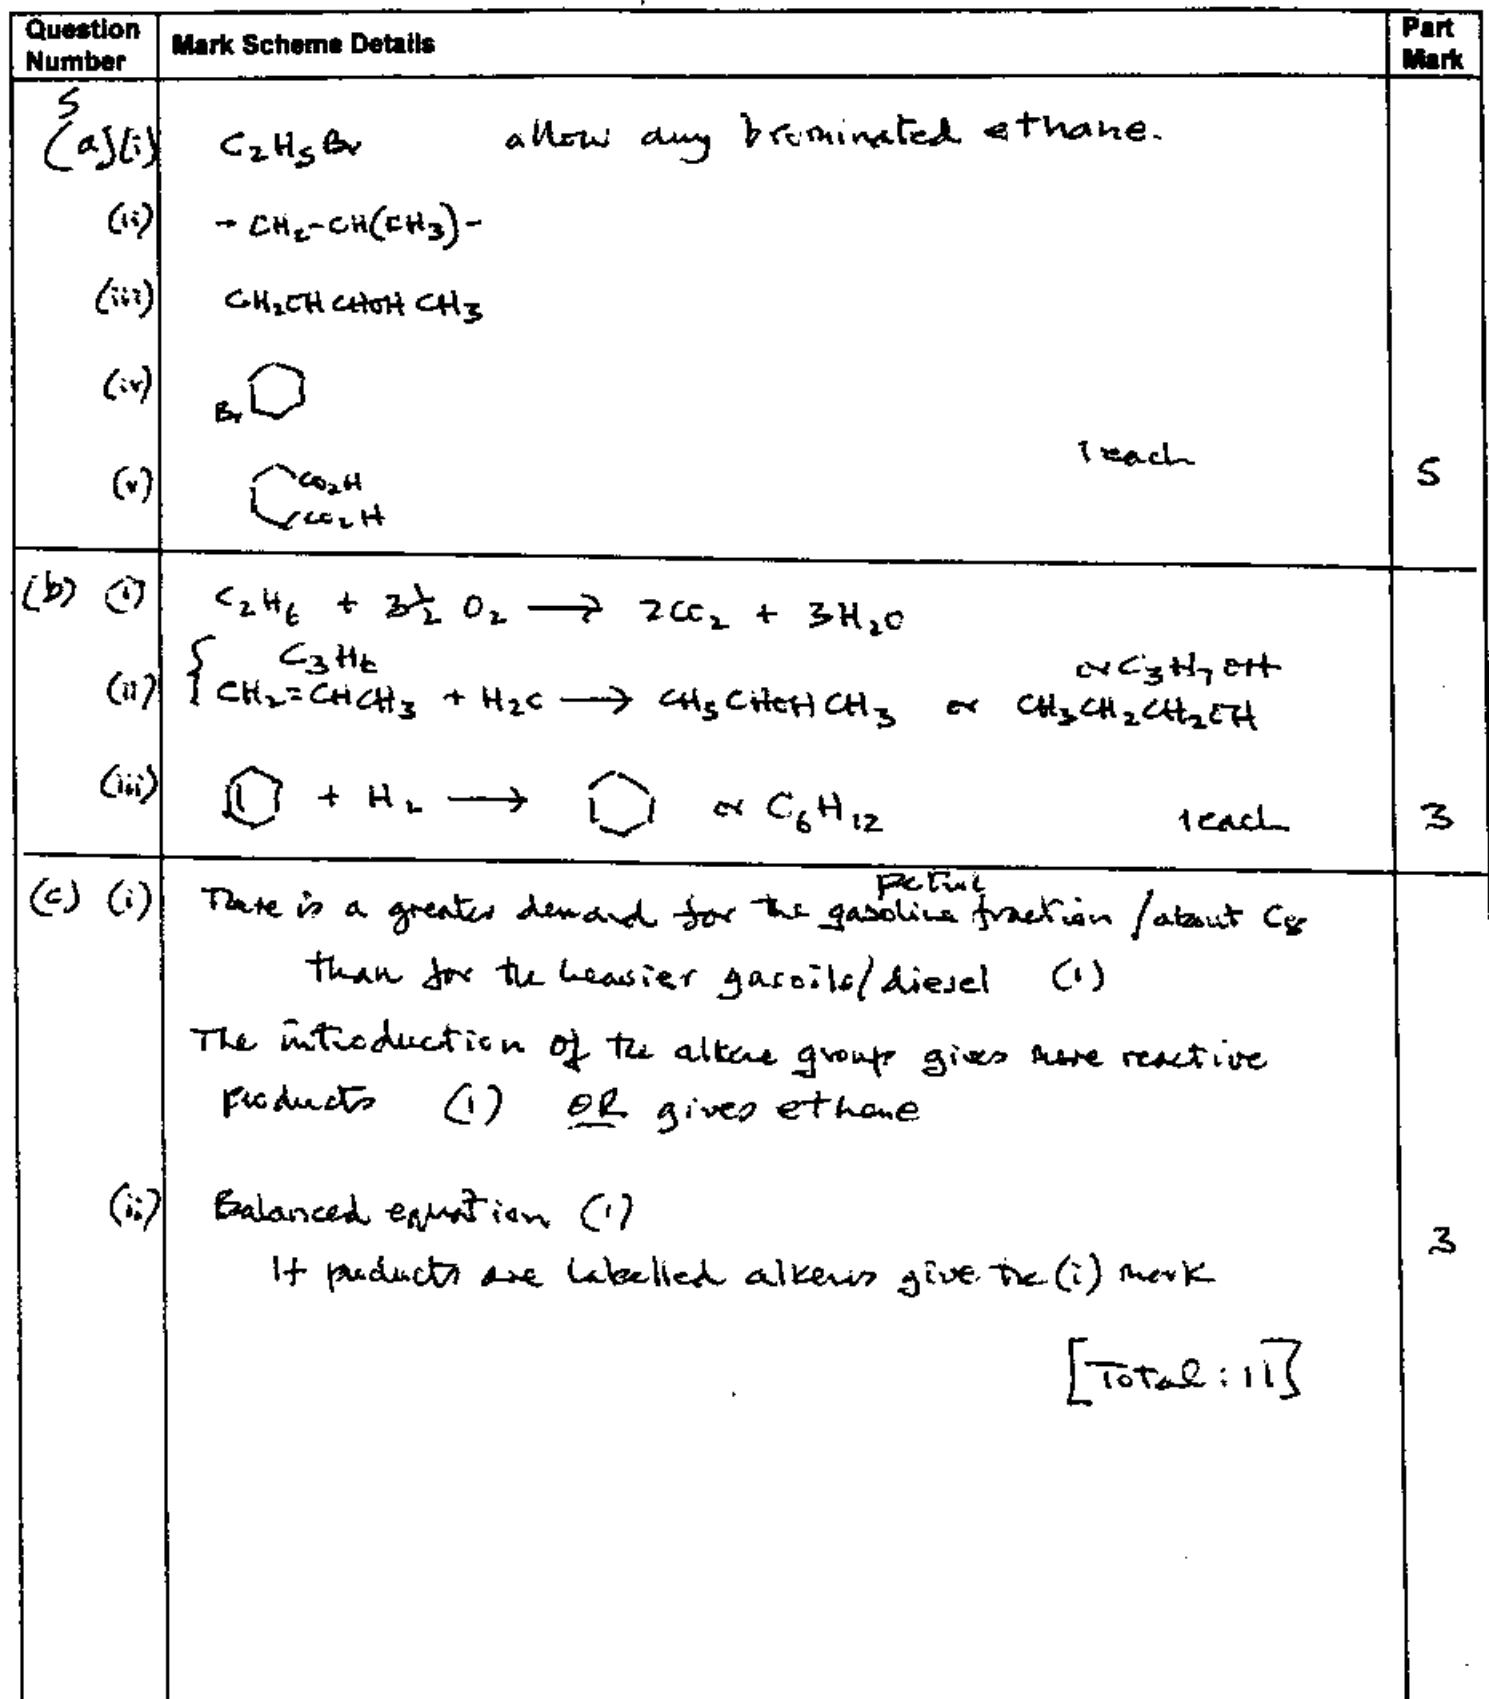 Question Number | Mark Scheme Details | Part Mark
5
(a)(i) C₂H₅Br allow any brominated ethane.
(ii) - CH₂-CH(CH₃)-
(iii) CH₂OH CHOH CH₃
(iv) Br
(v) CO₂H
CO₂H
1 each 5
(b) (i) C₂H₆ + 3½ O₂ → 2CO₂ + 3H₂O
C₃H₆ or C₃H₇OH
(ii) { CH₂=CHCH₃ + H₂O → CH₃CHOHCH₃ or CH₃CH₂CH₂OH
(iii) + H₂ → or C₆H₁₂ 1 each 3
petrol
(c) (i) There is a greater demand for the gasoline fraction / about C₈
than for the heavier gasoils/diesel (1)
The introduction of the alkene group gives more reactive
products (1) OR gives ethene
(ii) Balanced equation (1)
If products are labelled alkenes give the (i) mark
3
[Total: 11]